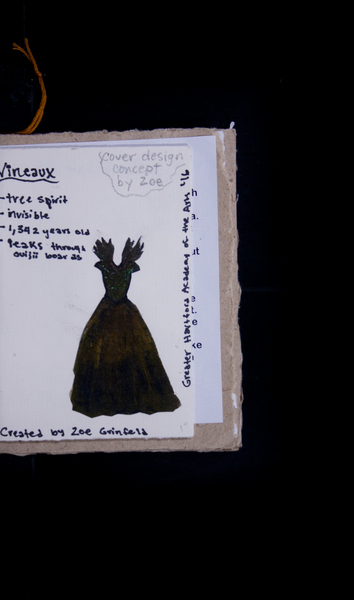 Vineaux
cover design
concept
by Zoe
- tree spirit
- invisible
- 1,542 years old
- Peaks through
ouijii boards
Greater Hartford Academy of the Arts '16
Created by Zoe Grinfeld